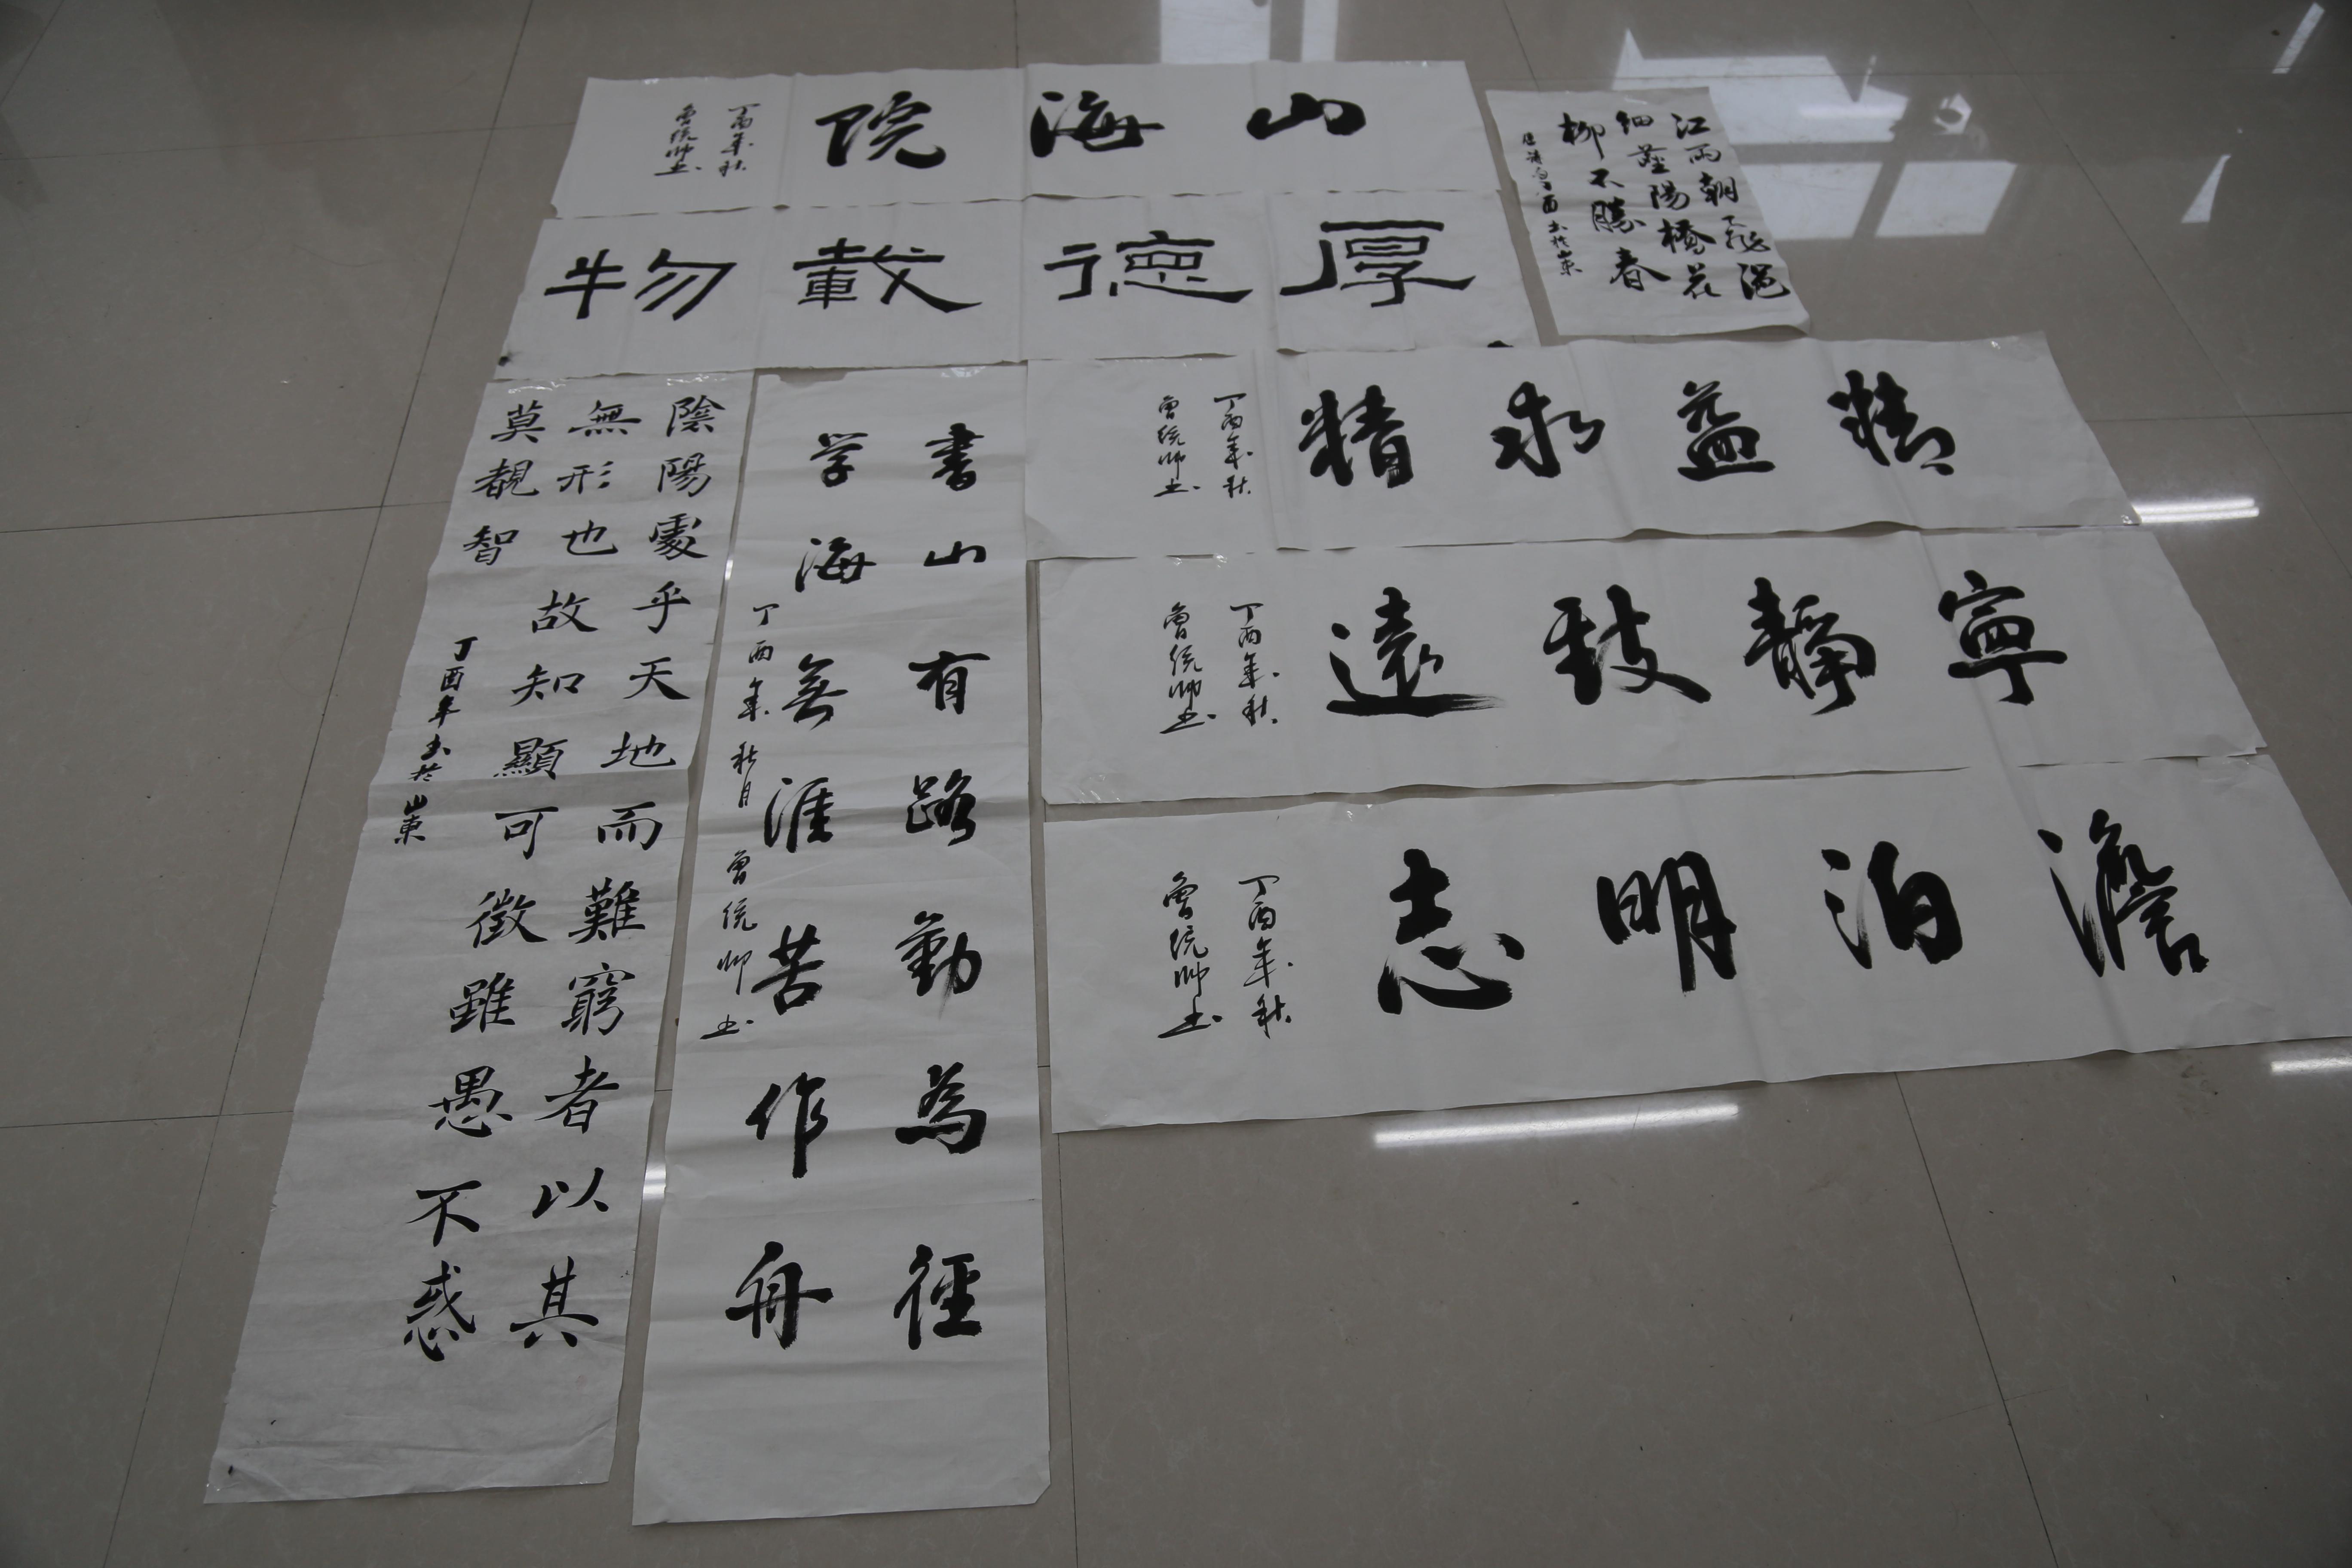 山海院
丁酉年秋
曾统帅书
厚德載物
江雨朝飛浥
細塵陽橋花
柳不勝春
丁酉书於山東
精益求精
丁酉年秋
曾统帅书
寧靜致遠
丁酉年秋
曾统帅书
澹泊明志
丁酉年秋
曾统帅书
書山有路勤為徑
学海無涯苦作舟
丁酉年秋月曾统帅书
陰陽處乎天地而難窮者以其
無形也故知顯可徵雖愚不惑
莫覩智
丁酉年书於山東